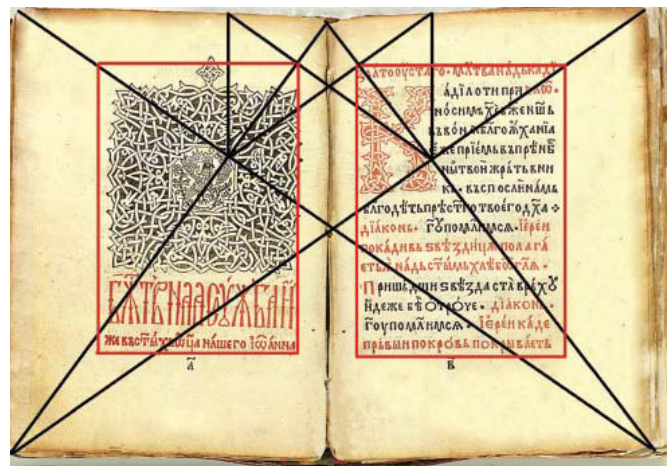 БЖ҃ТВНАА СЛꙊЖБА И҆
же въ ст҃ы́хъ ѻ҆ц҃а на́шего І҆ѡ҆а́нна
а҃
златоѹ́стаго. мл҃тва на́дь кади
ка́дїлоти при
но́симь хе҃ бж҃е нш҃ь
въ во́нꙗ бл҃гоꙋха́нїа
прїе́мь въ прѣнб
ни ть
къ. въспосли́ на́мь
бл҃года́ть прѣст҃го твоего̀ дх҃а
дїа́конь. гꙋ помл҃имсе. І҆ере́и
покади́вь ѕвѣ́здицꙋ пола га́
еть на́дь ст҃ы́мь хлѣ́бѡ гл҃ѥ.
Прише́дши ѕвѣ́зда ста̀ врь́хꙋ
и҆де́же бѣ̀ ѻ҆тро́че. дїа́конь.
гꙋ помл҃имсе. І҆ере́и каде
пръ́выи покро́вь покрыва́еть
в҃